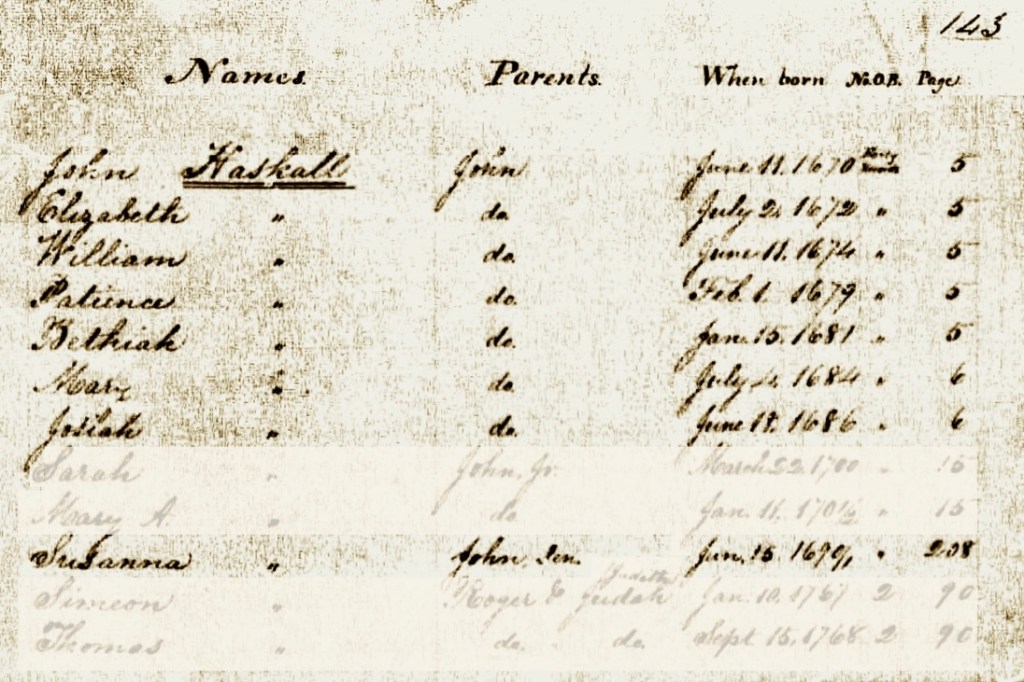 143
Names. Parents. When born No.O.B. Page
John Haskall John June 11. 1670 5
Elizabeth " do. July 2. 1672 " 5
William " do. June 11. 1674 " 5
Patience " do. Feb. 1. 1679 " 5
Bethiah " do. Jan. 15. 1681 " 5
Mary " do. July 4. 1684 " 6
Josiah " do. June 18. 1686 " 6
Sarah " John, Jr. March 22. 1700 " 15
Mary A. " do. Jan. 11. " 15
Susanna " John, Sen. 15. " 208
Judath
Simeon " Roger & Judah Jan. 10. 1767 2 90
Thomas " do. do. Sept 15. 1768 2 90